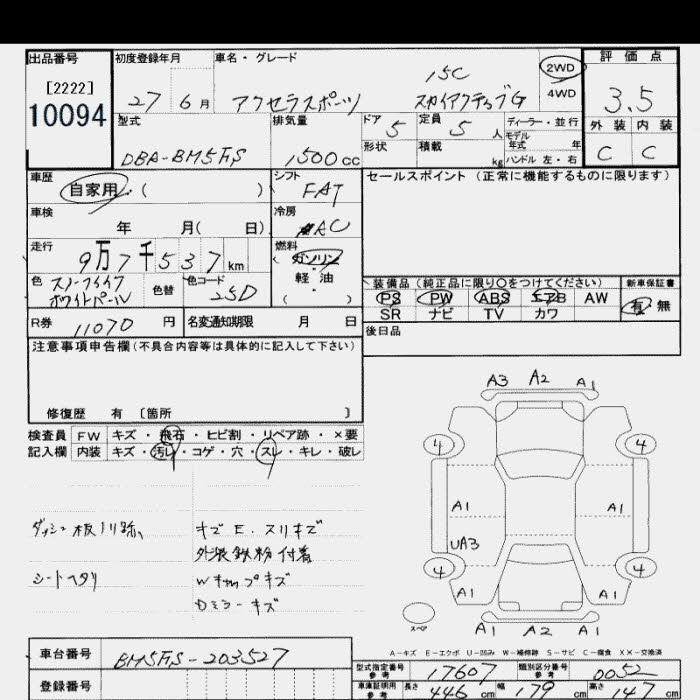 出品番号
[2222]
10094
初度登録年月
27 6月
車名・グレード
15C
アクセラスポーツ スカイアクティブG
2WD
4WD
評価点
3.5
外装 内装
C C
型式
DBA-BM5FS
排気量
1500cc
ドア 5
形状
定員 5人
積載 kg
ディーラー・並行
モデル年式 年
ハンドル 左・右
車歴
自家用 ( )
シフト
FAT
セールスポイント (正常に機能するものに限ります)
車検
年 月( 日)
冷房
AC
走行
9万7千537km
燃料
ガソリン
軽・油
( )
色
スノーフレイク
ホワイトパール
色替
色コード
25D
装備品 (純正品に限り〇をつけてください)
PS PW ABS エアB AW
SR ナビ TV カワ
新車保証書
有・無
R券 11070円
名変通知期限 月 日
後日品
注意事項申告欄 (不具合内容等は具体的に記入して下さい)
修復歴 有 〔箇所 〕
検査員 FW キズ・飛石・ヒビ割・リペア跡・×要
記入欄 内装 キズ・汚レ・コゲ・穴・スレ・キレ・破レ
ダッシュ板ノリ跡、
シートヘタリ
キズE.スリキズ
外装鉄粉付着
Wキャップキズ
Dミラーキズ
A3 A2 A1
4 4
A1 A1
UA3
4 4
A1 A1
スペア
A1 A2 A1
A-キズ E-エクボ U-凹み W-補修跡 S-サビ C-腐食 XX-交換済
車台番号 BM5FS-203527
登録番号
型式指定番号 参考 17607
類別区分番号 参考 0052
車庫証明用 参考 長さ 446cm 幅 179cm 高さ 147cm